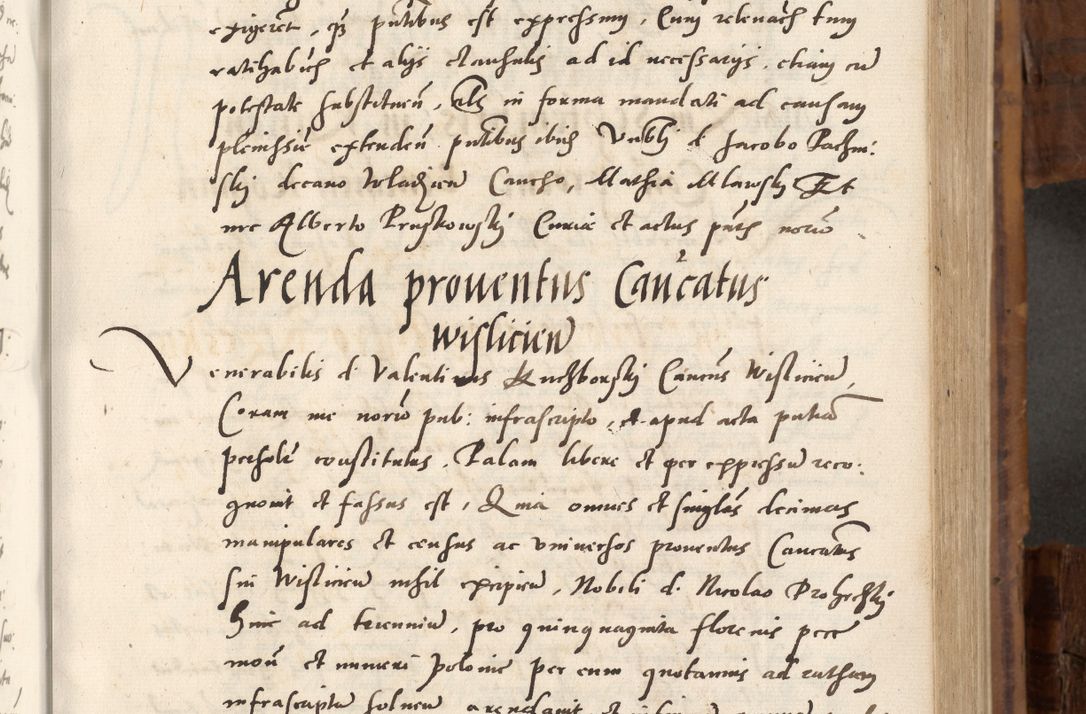 exigeret, qz pntibus est expressum, Cum relevach tum
ratihabich et alijs clausulis ad id necessarijs, etiam cu
potestate substituen, als in forma mandati ad causam
plenissie extenden pntibus ibid Vnbli d Jacobo Pachni:
ski decano Wladzien Cancho, Mathia Mlawski Et
me Alberto Pruskowskj Curiæ et actus pnts norio
Arenda prouentus Cancatus
wislicien
Venerabilis d Valentinus Kuchborskj Cancus Wislicien,
Coram me norio pub: infrascripto, et apud acta pntia
persolr constitutus, Palam libere et per expressu reco:
gnouit et fassus est, Quia omnes et singlas decimas
manipulares et census ac vniuersos prouentus Cancatus
sui Wislicien nihil excipien, Nobili d. Nicolao
hinc ad trienniu, pro quinquaginta florenis pecc
mon et numeri Polonie per eum quotannis ad ratham
infrascripta soluen arendauit et